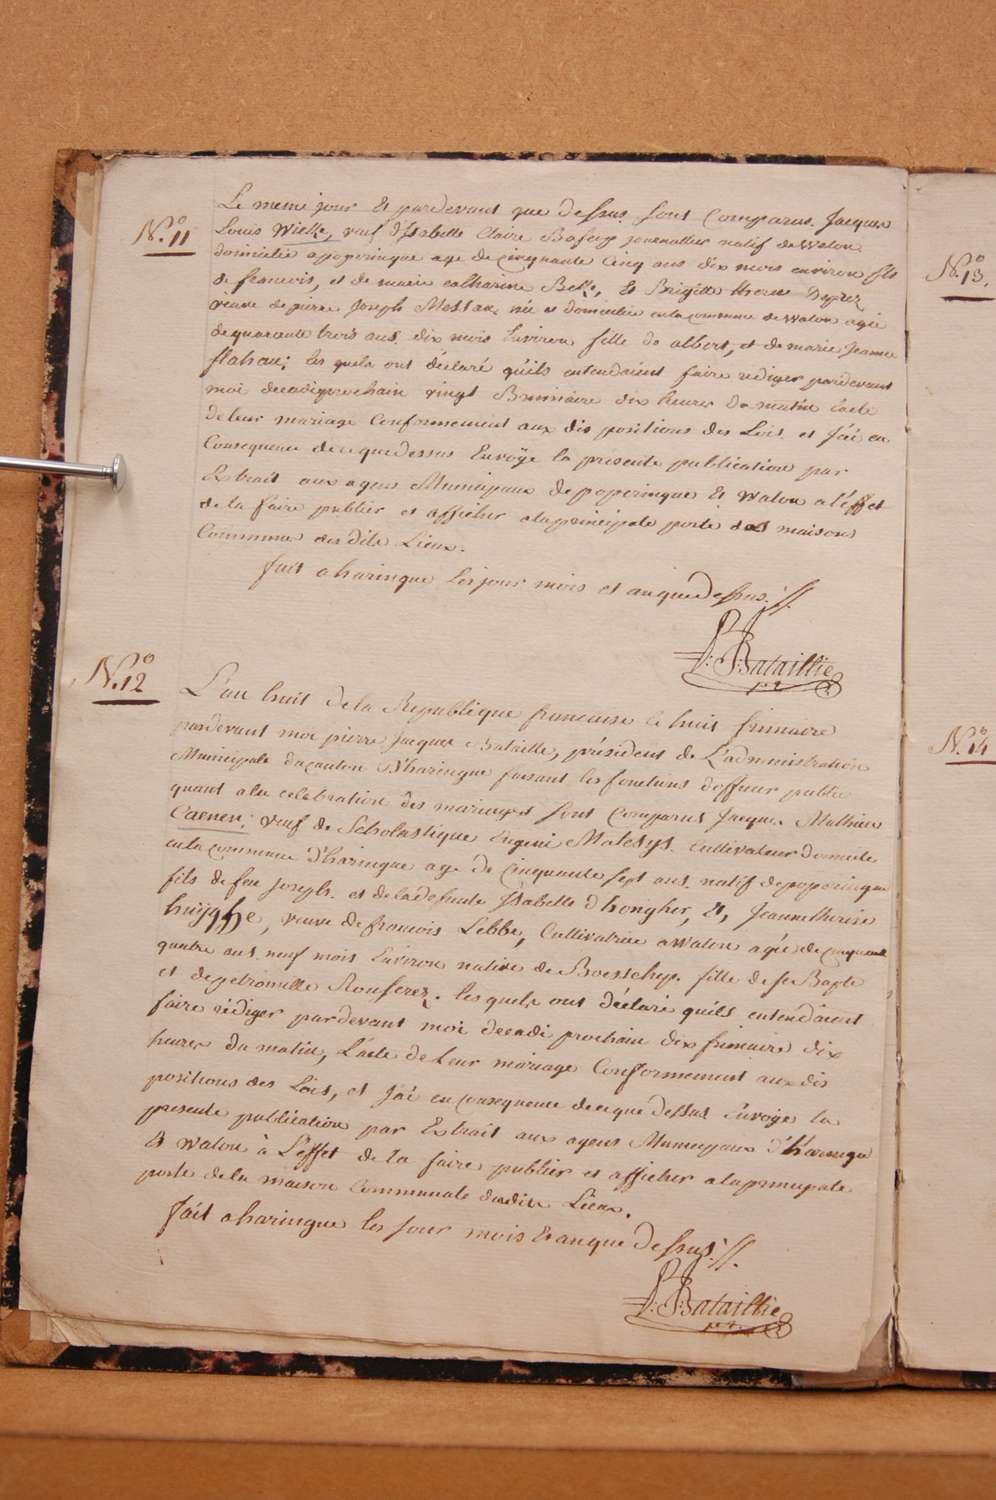 N.º 11
Le meme jour Et pardevant que dessus sont Comparus Jacques
Louis Wicke, veuf d'Isabelle Claire journallier natif de Watou
domicilié a poperingue age de Cinquante Cinq ans dix mois environ fils
de francois, et de marie catharine Et Brigitte therese
veuve de pierre Joseph née et domiciliée en la commune de Watou agée
de quarante trois ans dix mois Environ fille de albert, et de marie Jeanne
flahau; les quels ont déclaré qu'ils entendaient faire rediger pardevant
moi decadi prochain vingt Brumaire dix heures du matin l'acte
de leur mariage Conformement aux dis positions des Lois et J'ai en
Consequence de ce que dessus Envoÿé la presente publication par
Extrait aux agens Municipaux de poperingue Et Watou a l'effet
de la faire publier et afficher a la principale porte des maisons
Commune des dits Lieux.
fait a haringue les jour mois et an que Dessus.//.
P: J: Bataillie
N.º 12
L'an huit de la Republique francaise le huit frimaire
pardevant moi pierre Jacques Bataille, président de L'administration
Municipale du canton D'haringue faisant les fonctions d'officier public
quant a la celebration des mariages sont Comparus Jacques Mathieu
Caenen; veuf de Scholastique Eugenie Malesys. Cultivateur domicilié
en la commune d'haringue age de Cinquante sept ans natif de poperingue
fils de feu Joseph et de la defunte Isabelle d'hongher, Et, Jeanne therese
huÿghe, veuve de francois Lebbe, Cultivatrice a Watou agée de cinquante
quatre ans neuf mois Environ native de Boeschep. fille de
et de petronille les quels ont déclaré qu'ils entendaient
faire rédiger par devant moi decadi prochain dix frimaire dix
heures du matin, L'acte de Leur mariage Conformement aux dis
positions des Lois, et J'ai en consequence de ce que dessus Envoÿé la
presente publication par Extrait aux agens Municipaux d'haringue
Et Watou à L'effet de la faire publier et afficher a la principale
porte de la maison Communale desdits Lieux.
fait a haringue les Jour mois Et an que Dessus.//.
P: J: Bataillie
N.º 13.
N.º 14